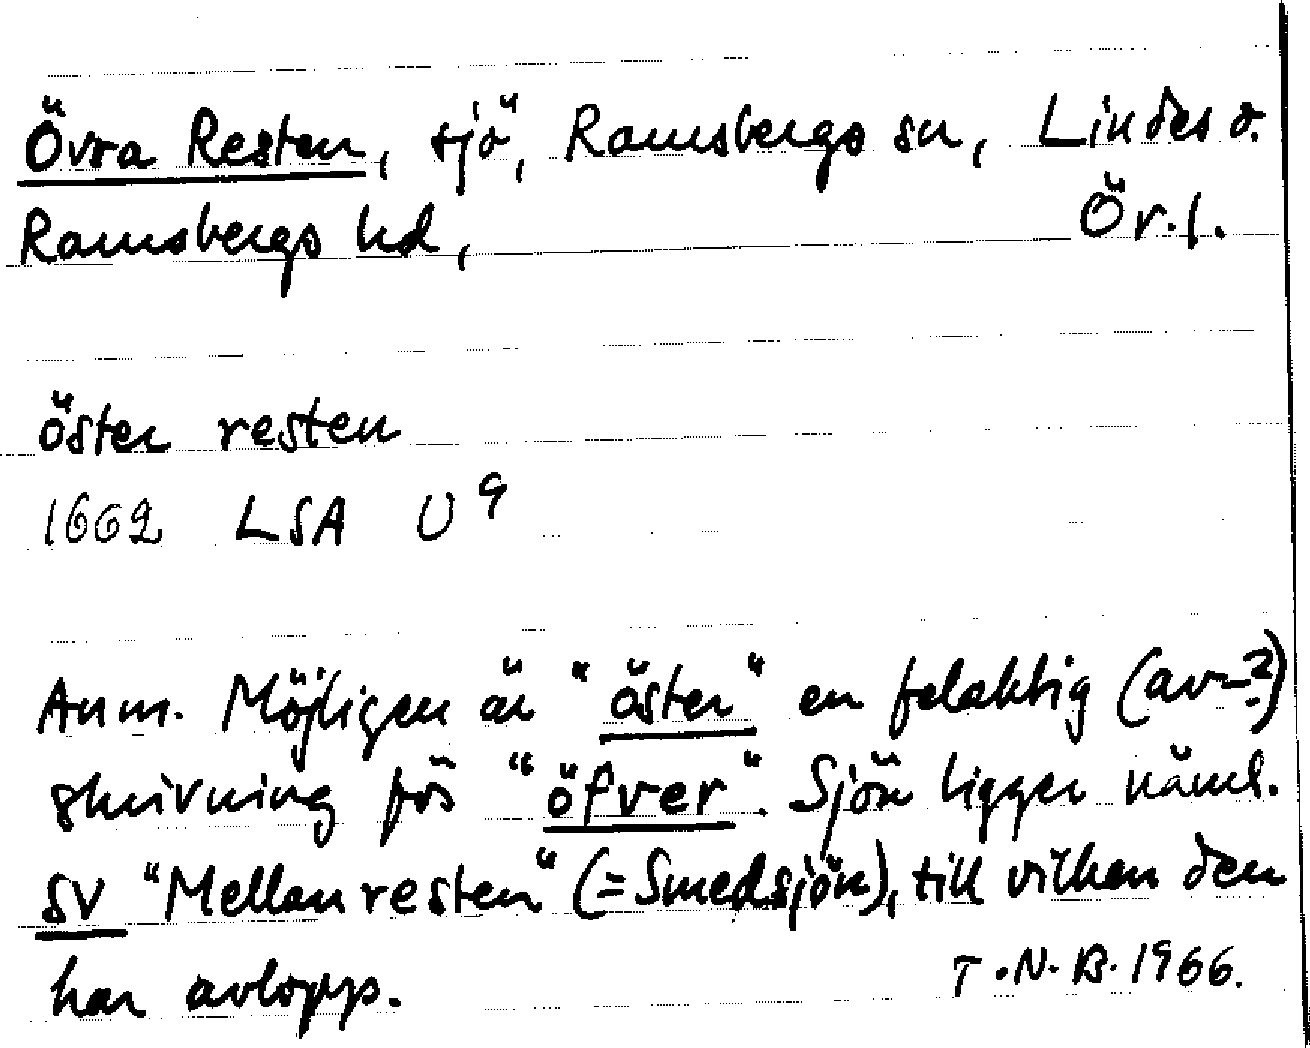 Övra Resten, sjö, Ramsbergs sn, Lindes o.
Ramsbergs hd, Ör.l.
öster resten
1662 LSA U 9
Anm. Möjligen är "öster" en felaktig (av-?)
skrivning för "öfver". Sjön ligger näml.
SV "Mellanresten" (=Smedsjön), till vilken den
har avlopp. T.N.B. 1966.